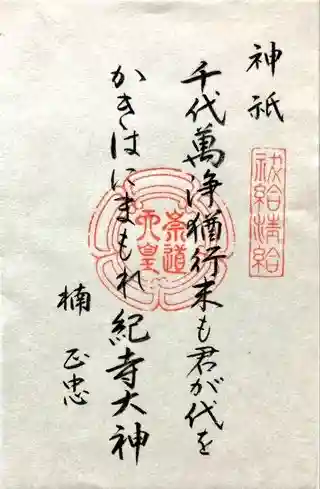 神祇
祓給清給
千代萬浄猶行末も君が代を
かきはにまもれ紀寺大神
楠正忠
崇道
天皇